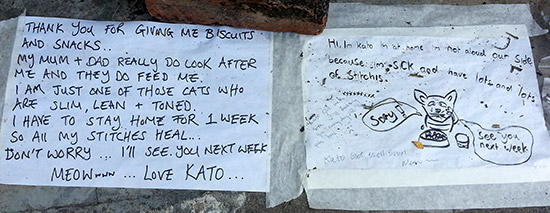 THANK YOU FOR GIVING ME BISCUITS
AND SNACKS..
MY MUM + DAD REALLY DO LOOK AFTER
ME AND THEY DO FEED ME.
I AM JUST ONE OF THOSE CATS WHO
ARE SLIM, LEAN + TONED.
I HAVE TO STAY HOME FOR 1 WEEK
SO ALL MY STITCHES HEAL...
DON'T WORRY... I'LL SEE YOU NEXT WEEK
MEOWwww ... LOVE KATO...
Hi, Im kato im at home im not aloud our side
because im SCK and have lots and lots
of Stitchis
Sorry!
See you
next week
Kato Get well soon